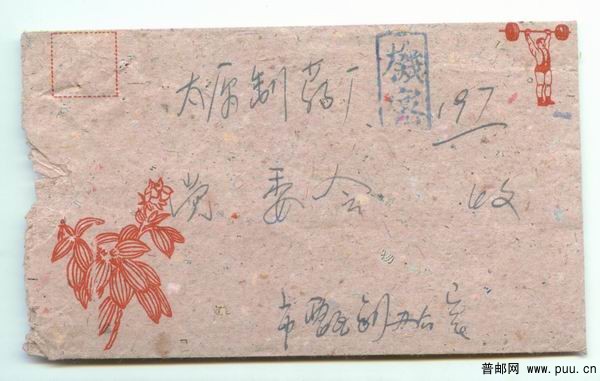 太原制药厂 机密 197
党委会 收
办公室
普邮网 www.puu.cn